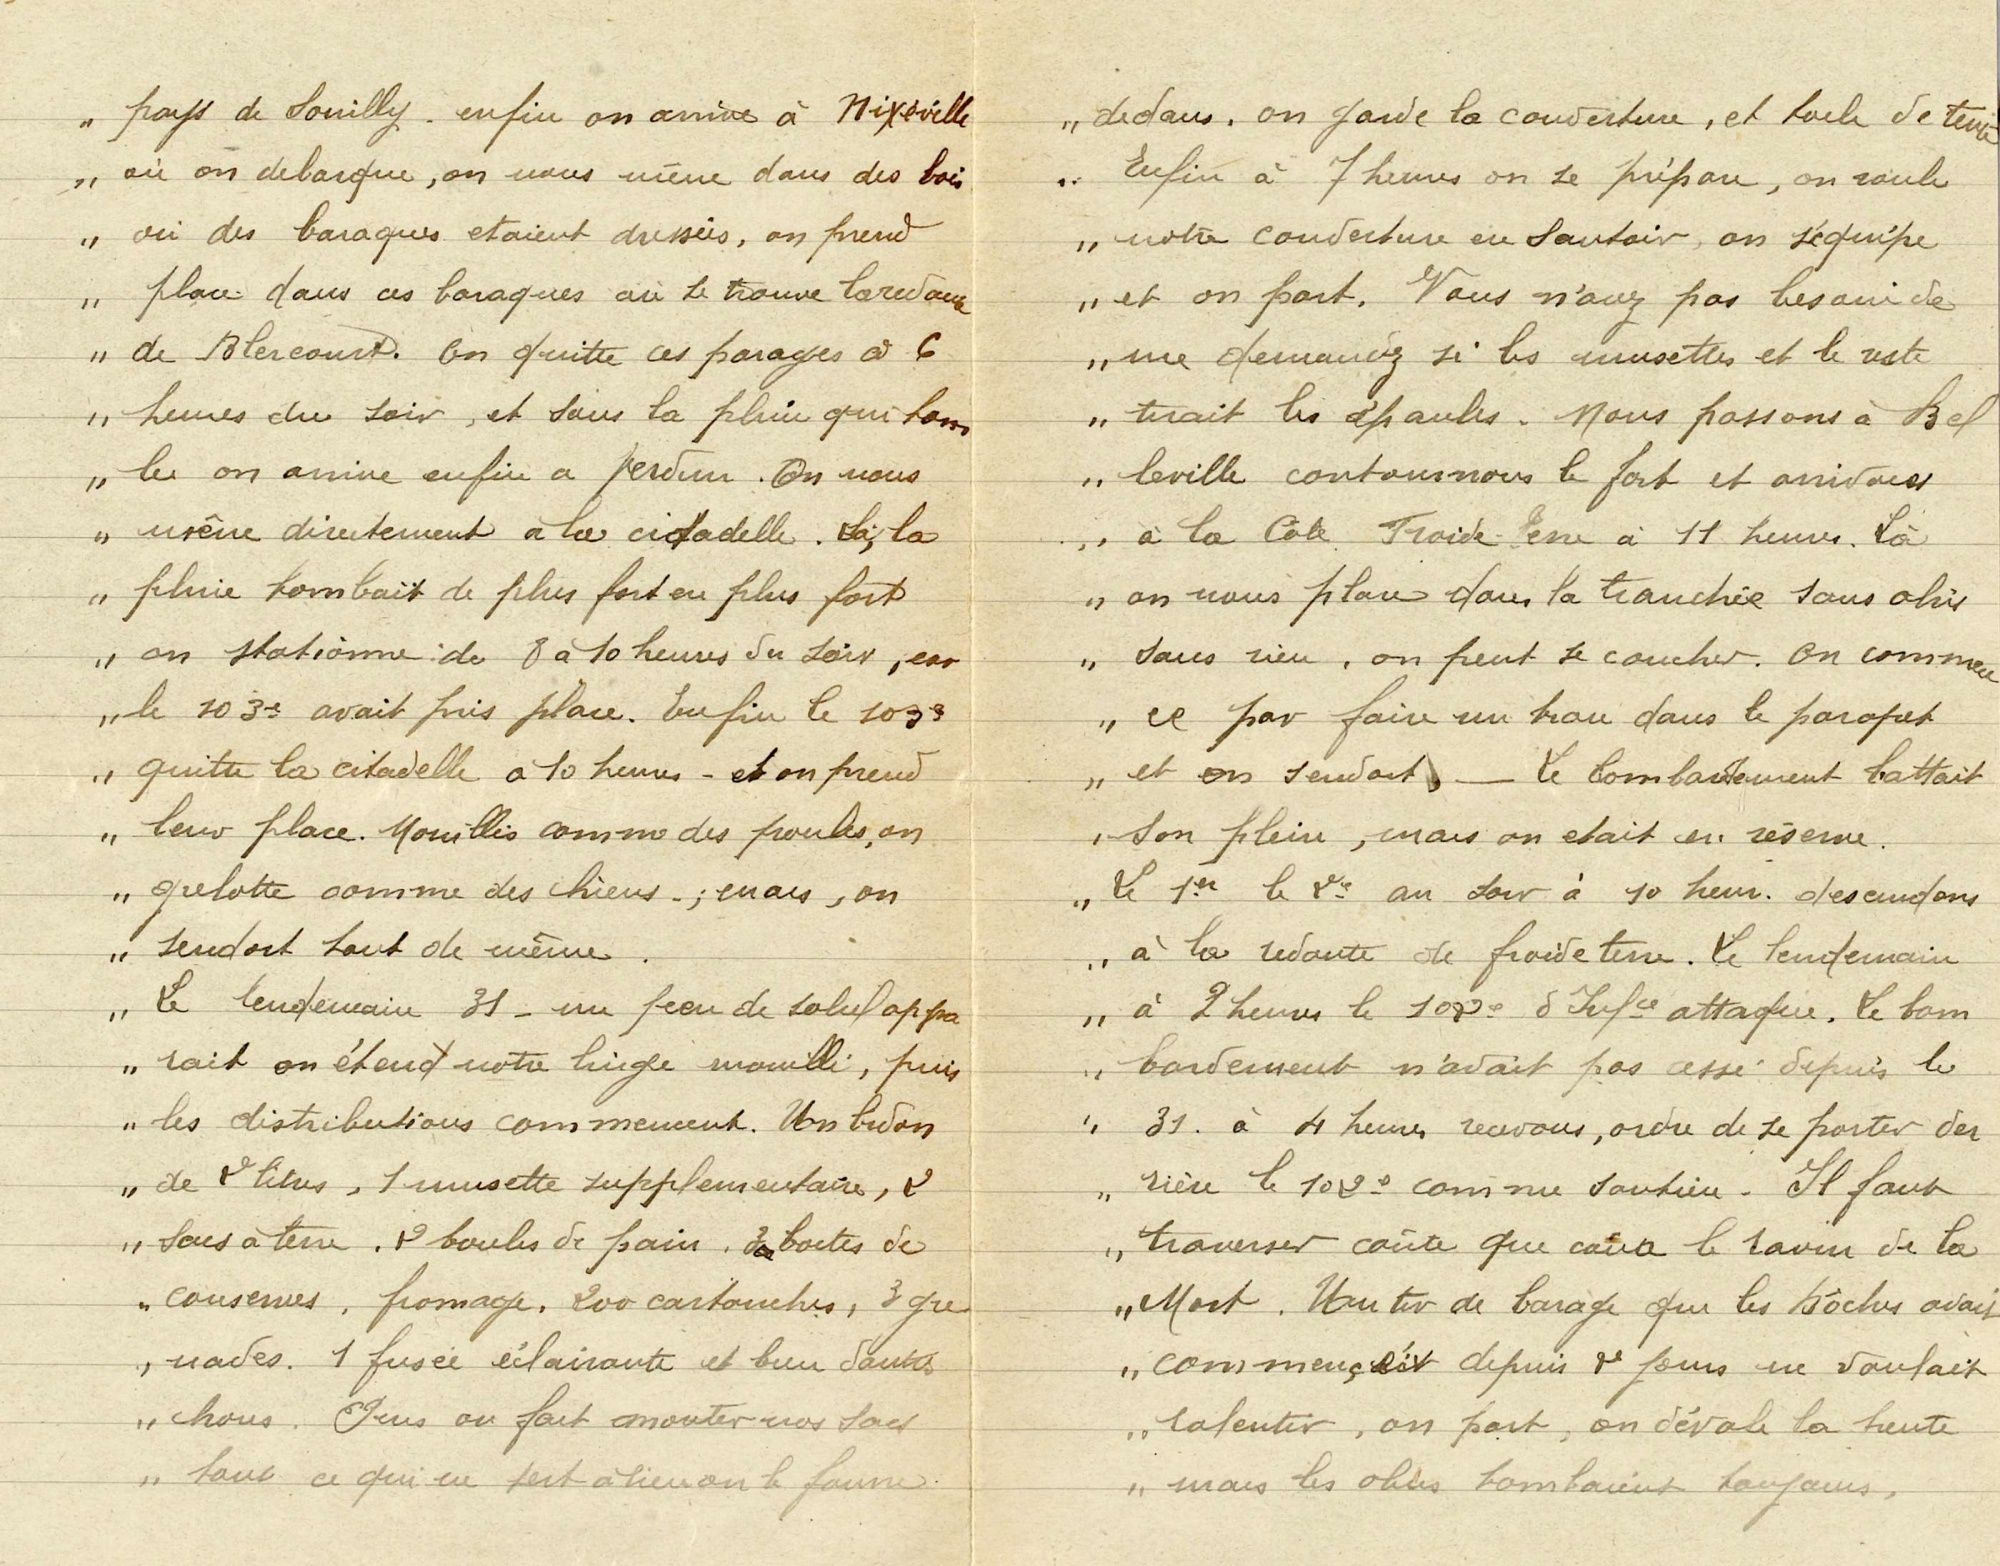 „ pays de Souilly. enfin on arrive à Nixéville
„ où on debarque, on nous mène dans des bois
„ où des baraques etaient dressées, on prend
„ place dans ces baraques où se trouve la redoute
„ de Blercourt. On quitte ces parages à 6
„ heures du soir, et sous la pluie qui tom
„ be on arrive enfin a Verdun. On nous
„ mêne directement a la citadelle. Là, la
„ pluie tombait de plus fort en plus fort
„ on stationne de 8 à 10 heures du soir, car
„ le 103e avait pris place. Enfin le 103e
„ quitte la citadelle a 10 heures - et on prend
„ leur place. Mouillés comme des poules, on
„ grelotte comme des chiens -; mais, on
„ sendort tout de même.
„ Le lendemain 31 - un peu de soleil appa
„ rait on étend notre linge mouillé, puis
„ les distributions commencent. Un bidon
„ de 2 litres, 1 musette supplementaire, 2
„ sacs à terre. 2 boules de pain. 3 boites de
„ conserves, fromage. 200 cartouches, 3 gre
„ nades. 1 fusée éclairante et bien dautres
„ choses. Puis on fait monter nos sacs
„ tout ce qui ne sert à rien on le fourre
„ dedans. on garde la couverture, et toile de tente
„ Enfin à 7 heures on se prépare, on roule
„ notre couverture en sautoir, on s'équipe
„ et on part. Vous n'avez pas besoin de
„ me demandez si les musettes et le reste
„ tirait les épaules. Nous passons à Bel
„ leville contournons le fort et arrivons
„ à la Côte Froide Terre à 11 heures. Là
„ on nous place dans la tranchée sans abris
„ sans rien, on peut se coucher. On commen
„ ce par faire un trou dans le parapet
„ et on sendort. — Le bombardement battait
„ son plein, mais on etait en réserve.
„ Le 1er le 2e au soir à 10 heur. descendons
„ à la redoute de froide terre. Le lendemain
„ à 2 heures le 102e d'Infce attaque. Le bom
„ bardement n'avait pas cessé depuis le
„ 31. à 4 heures recevons, ordre de se porter der
„ rière le 102e comme soutien. Il faut
„ traverser coûte que coûte le ravin de la
„ Mort. Un tir de barage que les Bôches avait
„ commençait depuis 2 jours ne voulait
„ ralentir, on part, on dévale la pente
„ mais les obus tombaient toujours,